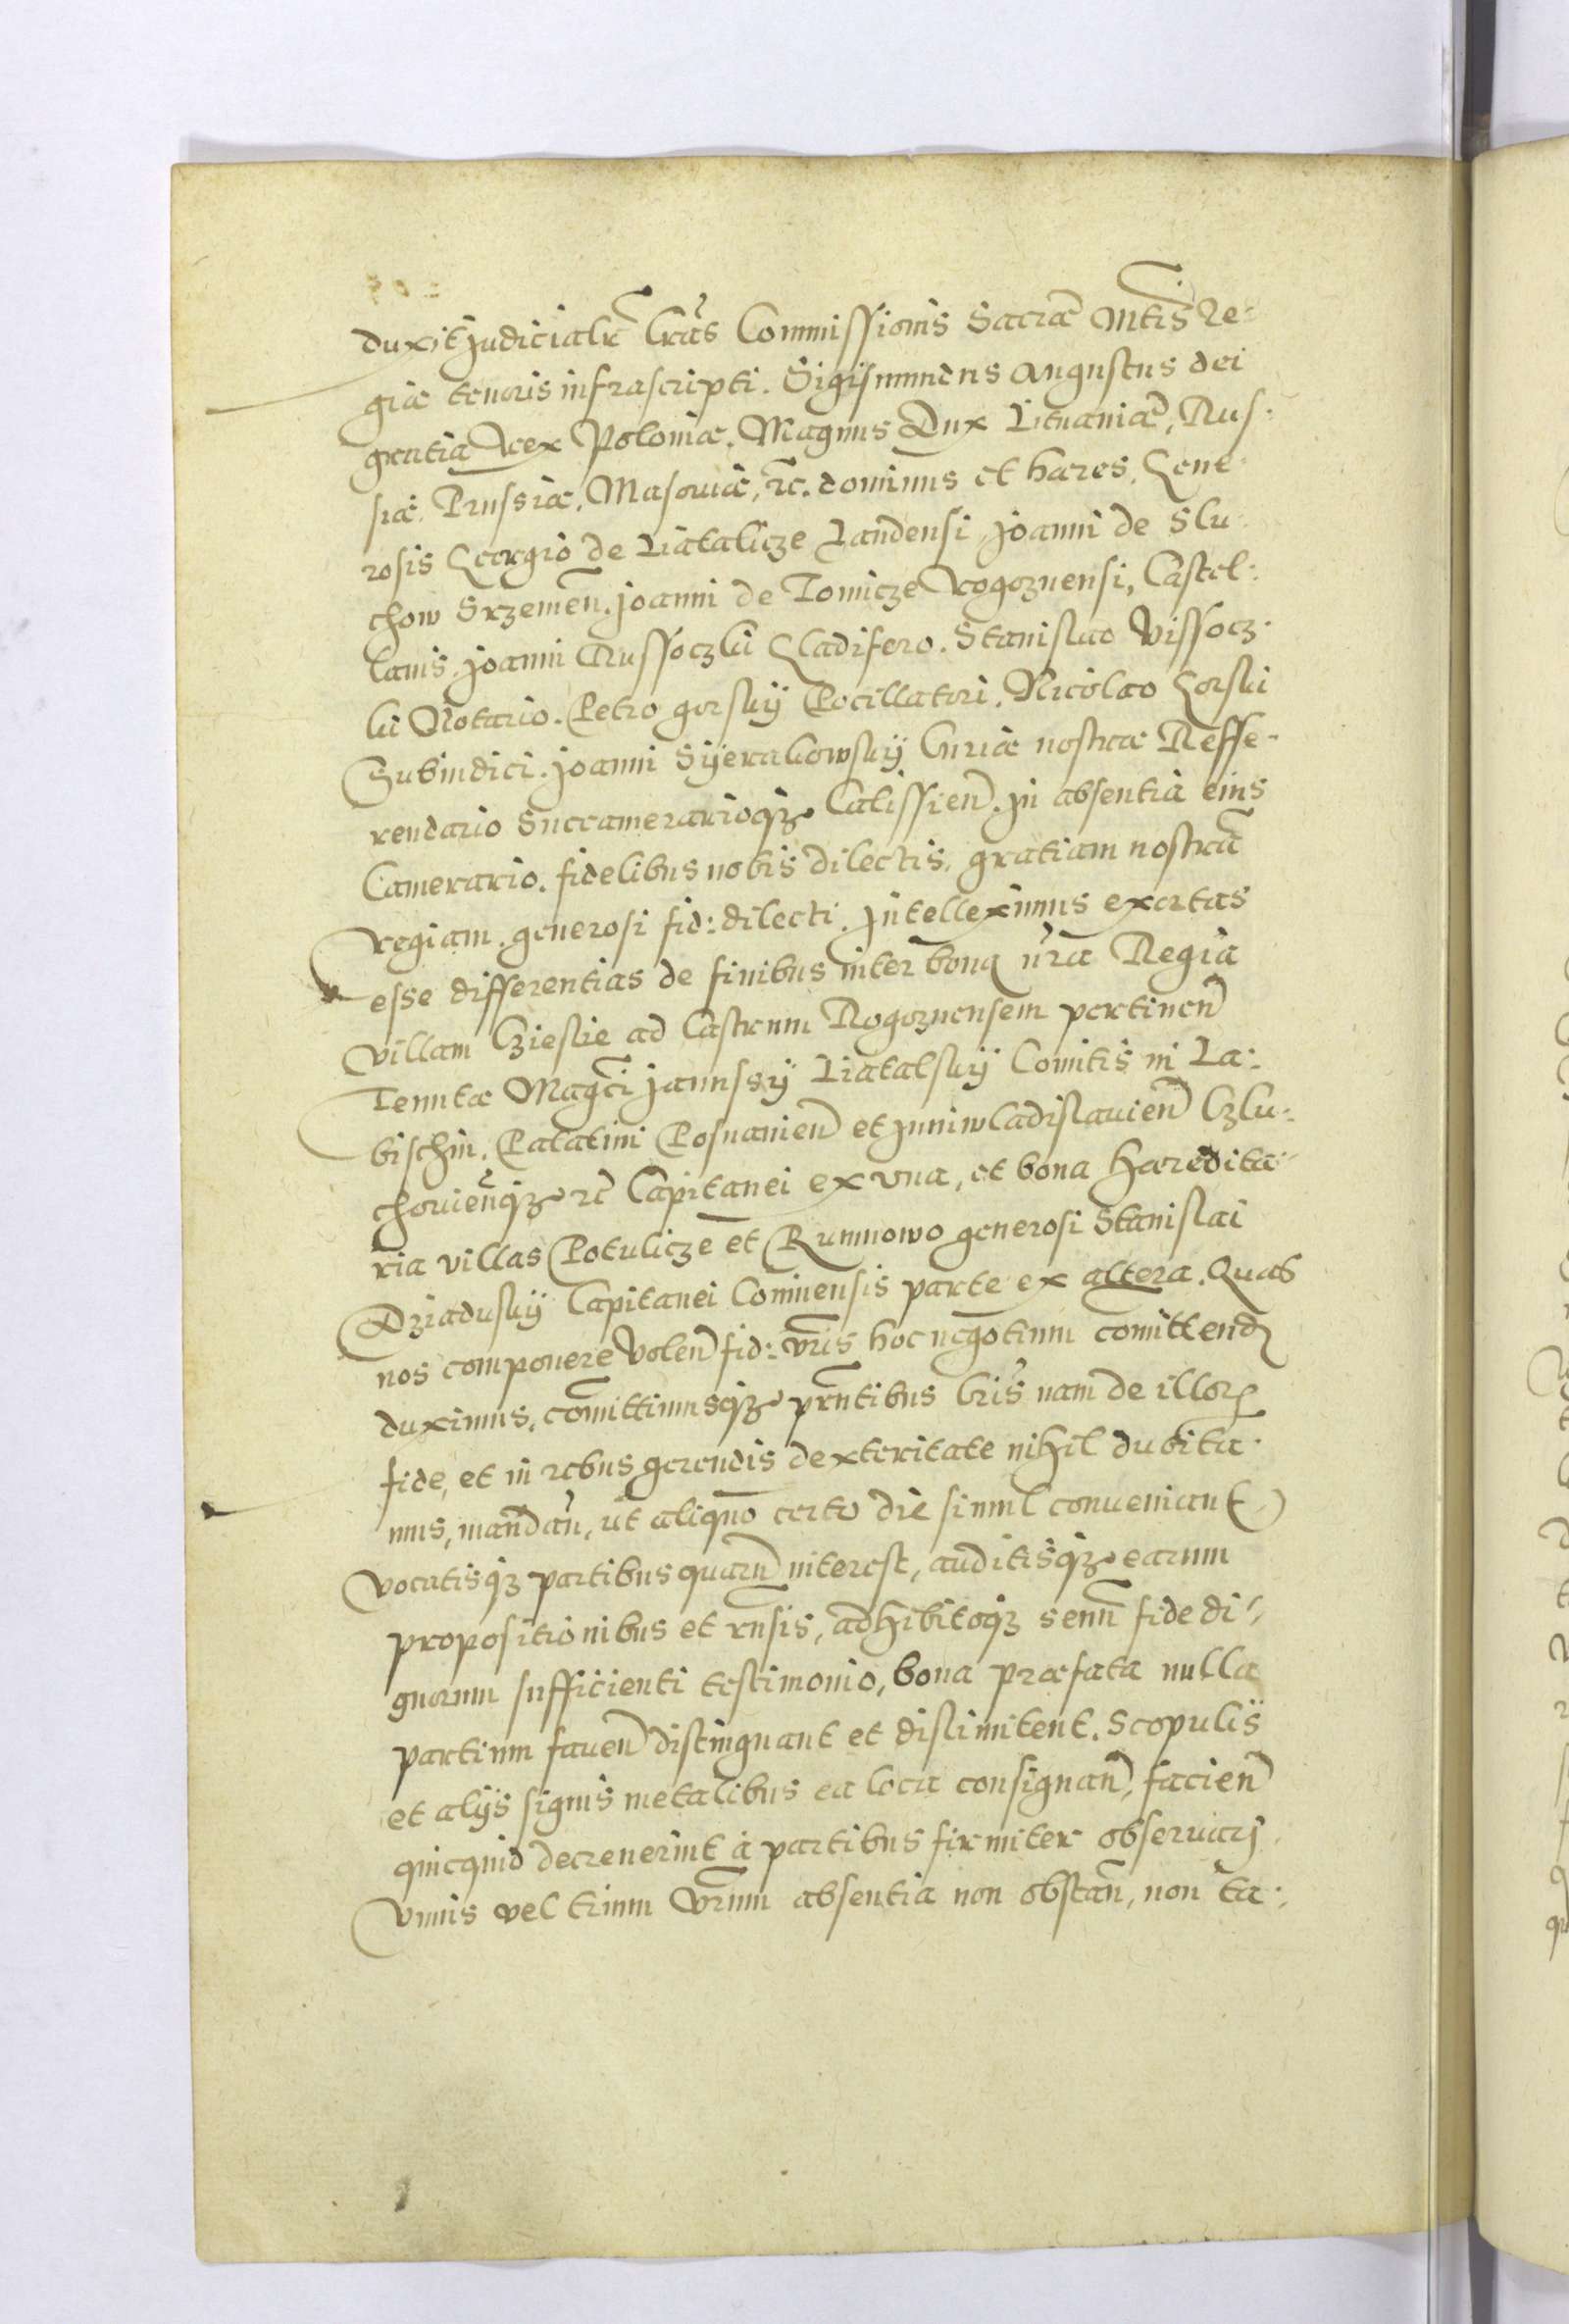 duxit Judicialr̃ lrãs Commissionis Sacræ Mtĩs Re-
giæ tenoris infrascripti. Sigismundus Augustus dei
gratia Rex Poloniæ. Magnus Dux Lituaniæ, Rus-
siæ. Prussiæ. Masouiæ, rc̃. dominus et hæres. Gene-
rosis Georgio de Liatalicze Landensi, Joanni de Slu-
chow Srzemeñ. Joanni de Tomicze Rogoznensi, Castel-
lanis. Joanni Russoczki Gladifero. Stanislao Vissocz-
ki Notario. Petro gorskÿ Pocillatori. Nicolao Gorski
Subiudici. Joanni Sÿerakowskÿ Curiæ nostræ Reffe-
rendario Succamerarioqȝ Calissieñ. in absentia eius
Camerario. fidelibus nobis dilectis, gratiam nostrã
regiam. generosi fid: dilecti. Intelleximus exortas
esse differentias de finibus inter bona nr̃a Regia
villam Czieslie ad Castrum Rogoznensem pertineñ
Tenutæ Magc̃i Janussÿ Liatalskÿ Comitis in La-
bischin. Palatini Posnanieñ et Juniwladislauieñ Czlu-
chouieñqȝ rc̃ Capitanei ex vna, et bona Hæredita-
ria villas Potulicze et Runnowo generosi Stanislai
Dziaduskÿ Capitanei Coninensis parte ex altera. Quas
nos componere voleñ fid: vr̃is hoc negotium comittend
duximus, com̃ittimusqȝ pr̃ntibus lr̃is nam de illor
fide, et in rebus gerendis dexteritate nihil dubita-
mus, mandañ, ut aliquo certo die simul conueniant
vocatisqȝ partibus quarũ interest, auditisqȝ earum
propositionibus et rñsis, adhibitoqȝ senũ fide di-
gnorum sufficienti testimonio, bona præfata nulla
partium faueñ distinguant et dislimitent. Scopulis
et alÿs signis metalibus ea loca consignañ, facieñ
quicquid decreuerint à partibus firmiter obseruarj.
Vnius vel trium vr̃um absentia non obstañ, non ta-